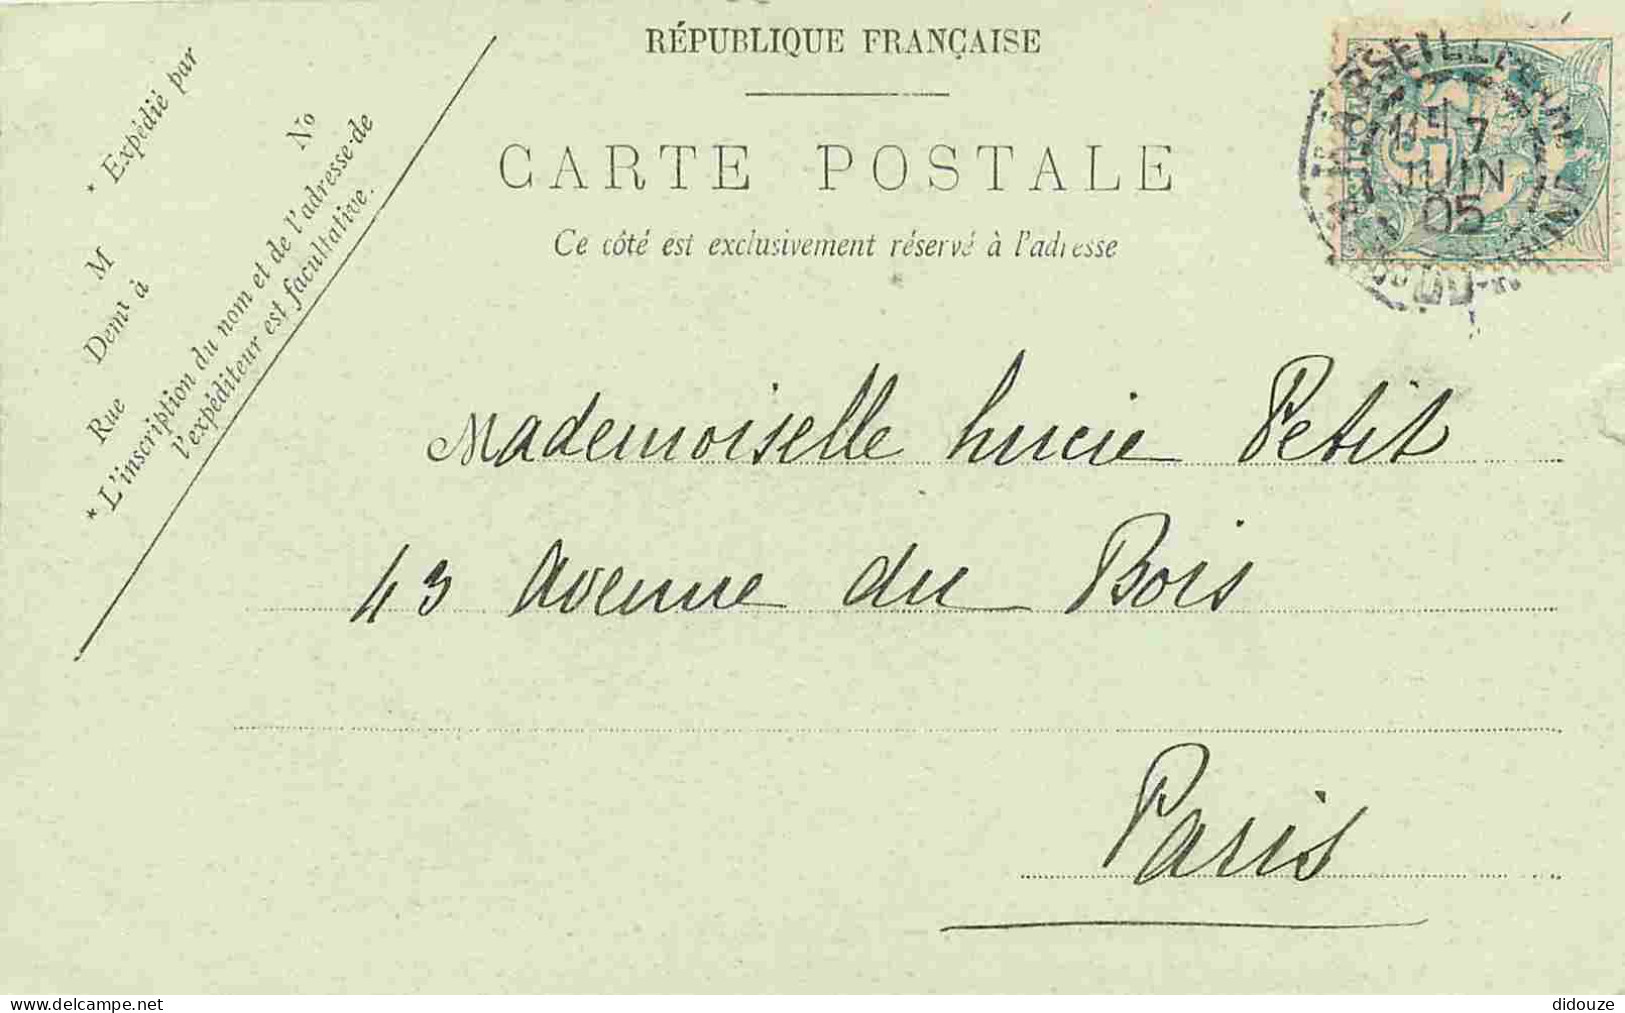 RÉPUBLIQUE FRANÇAISE
CARTE POSTALE
Ce côté est exclusivement réservé à l'adresse
* Expédié par
M
Demt à
Rue No
* L'inscription du nom et de l'adresse de
l'expéditeur est facultative.
MARSEILLE
7
JUIN
05
Mademoiselle Lucie Petit
43 Avenue du Bois
Paris
delcampe.net
didouze